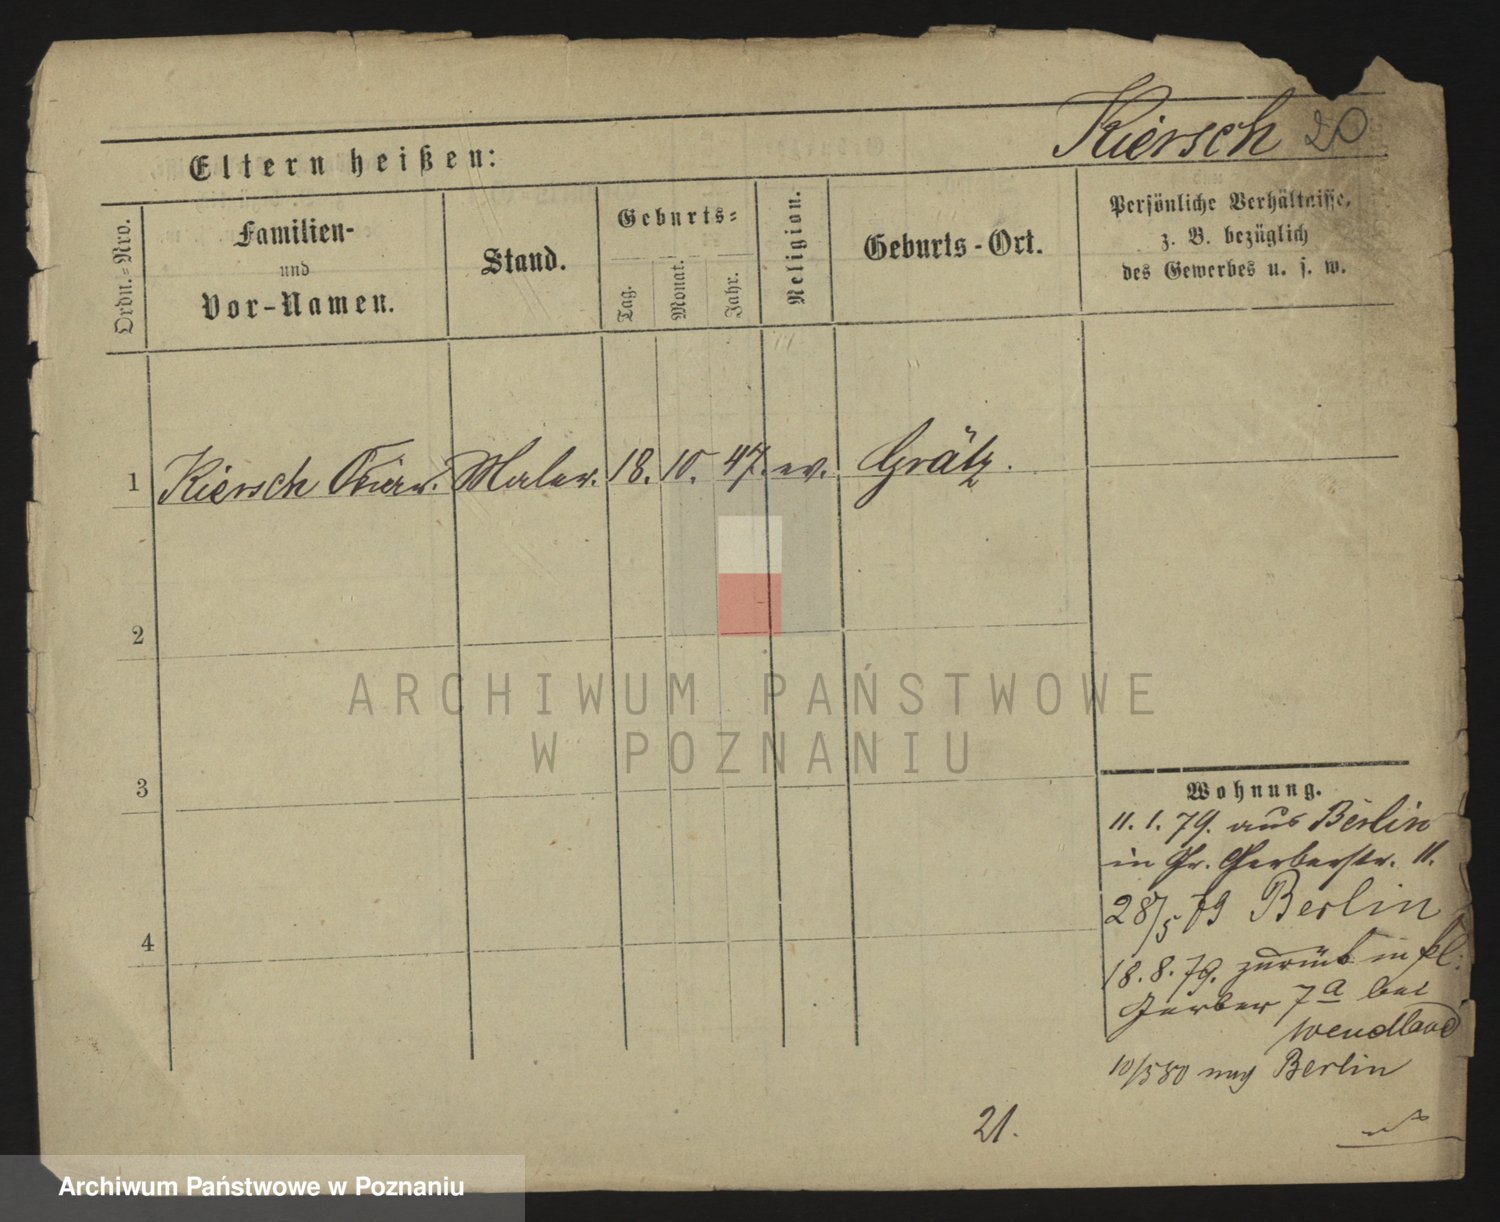 Kiersch 20
Eltern heißen:
Ordn.=Nro.
Familien-
und
Vor-Namen.
Stand.
Geburts=
Tag.
Monat.
Jahr.
Religion.
Geburts-Ort.
Persönliche Verhältnisse,
z. B. bezüglich
des Gewerbes u. s. w.
1 Kiersch Maler. 18. 10. 47. ev. Grätz.
2
3
4
ARCHIWUM PAŃSTWOWE
W POZNANIU
Wohnung.
11. 1. 79. aus Berlin
in Gr. Gerberstr. 11.
28/5 79 Berlin
18. 8. 79. zurück in kl.
Gerber 7a bei
Wendland
10/5 80 nach Berlin
21.
Archiwum Państwowe w Poznaniu